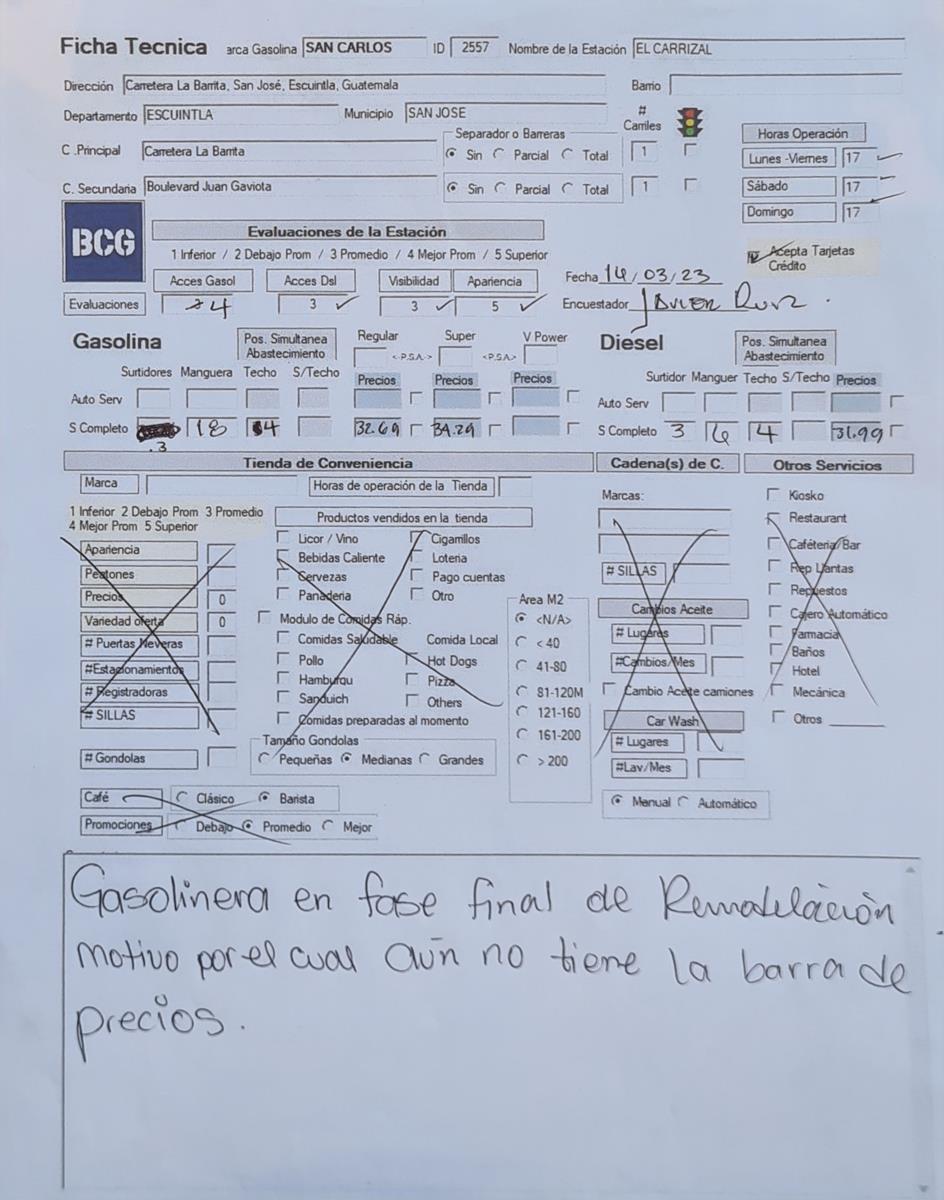 Ficha Tecnica arca Gasolina SAN CARLOS ID 2557 Nombre de la Estación EL CARRIZAL
Dirección Carretera La Barrita, San José, Escuintla, Guatemala Barrio
Departamento ESCUINTLA Municipio SAN JOSE # Carriles
C .Principal Carretera La Barrita Separador o Barreras Sin Parcial Total 1
Horas Operación
Lunes -Viernes 17
C. Secundaria Boulevard Juan Gaviota Sin Parcial Total 1
Sábado 17
Domingo 17
BCG
Evaluaciones de la Estación
1 Inferior / 2 Debajo Prom / 3 Promedio / 4 Mejor Prom / 5 Superior
Acepta Tarjetas Crédito
Acces Gasol Acces Dsl Visibilidad Apariencia
Fecha 14/03/23
Evaluaciones 4 3 3 5
Encuestador Javier Ruiz
Gasolina Pos. Simultanea Abastecimiento Regular Super V Power
<-P.S.A.-> <-P.S.A.->
Surtidores Manguera Techo S/Techo Precios Precios Precios
Auto Serv
S Completo 3 18 4 32.69 34.29
Diesel Pos. Simultanea Abastecimiento
Surtidor Manguer Techo S/Techo Precios
Auto Serv
S Completo 3 6 4 31.99
Tienda de Conveniencia
Marca Horas de operación de la Tienda
1 Inferior 2 Debajo Prom 3 Promedio
4 Mejor Prom 5 Superior
Apariencia
Peatones
Precios 0
Variedad oferta 0
# Puertas Neveras
#Estacionamientos
# Registradoras
# SILLAS
# Gondolas
Productos vendidos en la tienda
Licor / Vino Cigarrillos
Bebidas Caliente Loteria
Cervezas Pago cuentas
Panaderia Otro
Modulo de Comidas Ráp.
Comidas Saludable Comida Local
Pollo Hot Dogs
Hamburqu Pizza
Sanduich Others
Comidas preparadas al momento
Tamaño Gondolas
Pequeñas Medianas Grandes
Area M2
<N/A>
< 40
41-80
81-120M
121-160
161-200
> 200
Café Clásico Barista
Promociones Debajo Promedio Mejor
Cadena(s) de C.
Marcas:
# SILLAS
Cambios Aceite
# Lugares
#Cambios/Mes
Cambio Aceite camiones
Car Wash
# Lugares
#Lav/Mes
Manual Automático
Otros Servicios
Kiosko
Restaurant
Caféteria/Bar
Rep Llantas
Repuestos
Cajero Automático
Farmacia
Baños
Hotel
Mecánica
Otros
Gasolinera en fase final de Remodelación
motivo por el cual aún no tiene la barra de
precios.